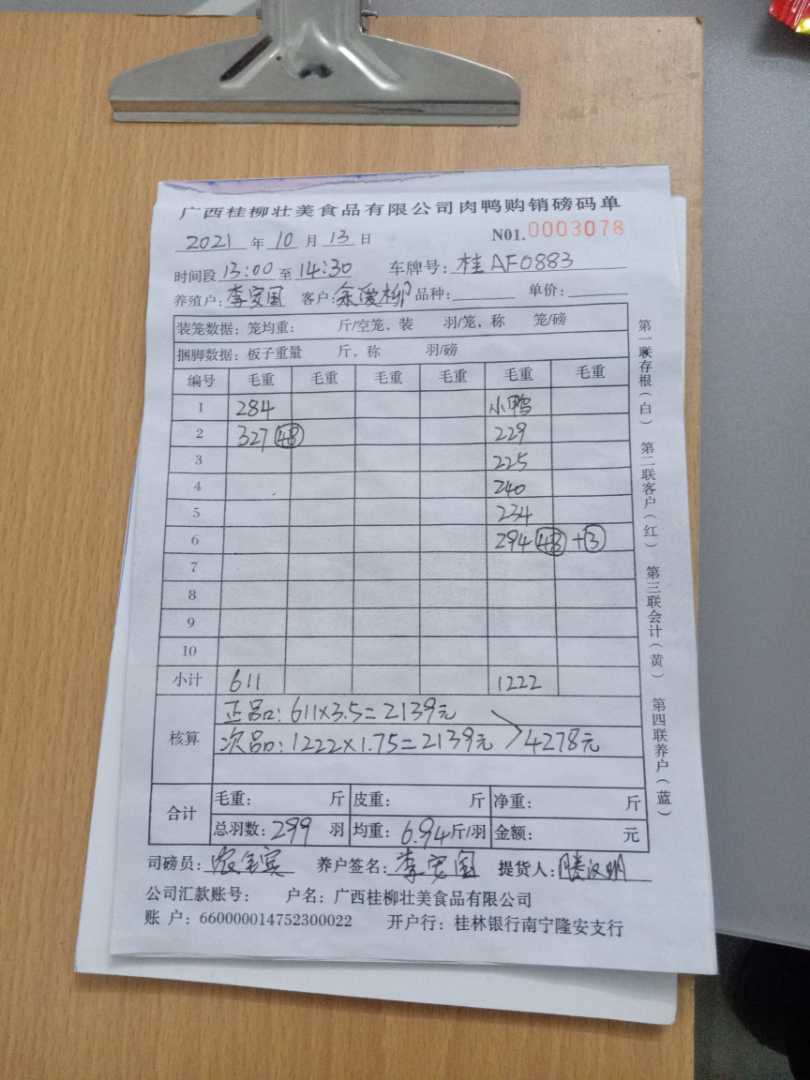 广西桂柳壮美食品有限公司肉鸭购销磅码单
2021 年 10 月 13 日 N01.0003078
时间段 13:00 至 14:30 车牌号: 桂AF0883
养殖户: 李安国 客户: 余爱柳 品种: 单价:
装笼数据: 笼均重: 斤/空笼, 装 羽/笼, 称 笼/磅
捆脚数据: 板子重量 斤, 称 羽/磅
编号 毛重 毛重 毛重 毛重 毛重 毛重
1 284 小鸭
2 327 48 229
3 225
4 240
5 234
6 294 48 +3
7
8
9
10
小计 611 1222
核算 正品: 611×3.5=2139元
次品: 1222×1.75=2139元 4278元
合计 毛重: 斤 皮重: 斤 净重: 斤
总羽数: 299 羽 均重: 6.94 斤/羽 金额: 元
司磅员: 养户签名: 李安国 提货人:
公司汇款账号: 户名: 广西桂柳壮美食品有限公司
账 户: 660000014752300022 开户行: 桂林银行南宁隆安支行
第一联存根(白) 第二联客户(红) 第三联会计(黄) 第四联养户(蓝)